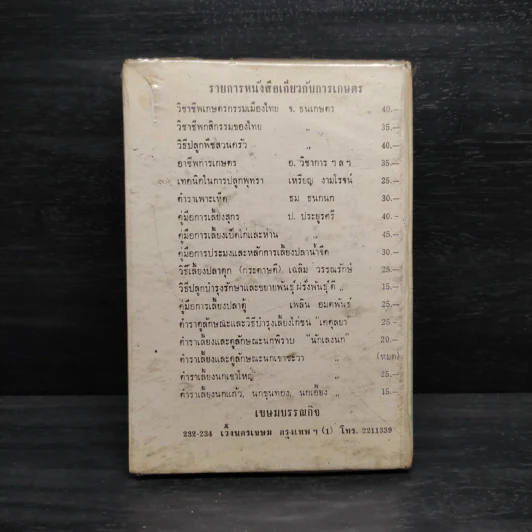 รายการหนังสือเกี่ยวกับการเกษตร
วิชาชีพเกษตรกรรมเมืองไทย จ. ธนเกษตร 40.—
วิชาชีพกสิกรรมของไทย ,, 35.—
วิธีปลูกพืชสวนครัว ,, 40.—
อาชีพการเกษตร อ. วิชาการ ฯลฯ 35.—
เทคนิคในการปลูกพุทรา เหรียญ งามโรจน์ 25.—
ตำราเพาะเห็ด ธม ธนกนก 30.—
คู่มือการเลี้ยงสุกร ป. ประยูรศรี 40.—
คู่มือการเลี้ยงเป็ดไก่และห่าน ,, 45.—
คู่มือการประมงและหลักการเลี้ยงปลาน้ำจืด 30.—
วิธีเลี้ยงปลาดุก (กระดาษดี) เฉลิม วรรณรักษ์ 25.—
วิธีปลูกบำรุงรักษาและขยายพันธุ์ฝรั่งพันธุ์ดี ,, 15.—
คู่มือการเลี้ยงปลาตู้ เพลิน อมตพันธุ์ 25.—
ตำราดูลักษณะและวิธีบำรุงเลี้ยงไก่ชน 25.—
ตำราเลี้ยงและดูลักษณะนกพิราบ "นักเลงนก" 20.—
ตำราเลี้ยงและดูลักษณะนกเขาชะวา ,, (หมด)
ตำราเลี้ยงนกเขาใหญ่ ,, 25.—
ตำราเลี้ยงนกแก้ว, นกขุนทอง, นกเอี้ยง ,, 15.—
เขษมบรรณกิจ
232-234 เวิ้งนครเขษม กรุงเทพฯ (1) โทร. 2211339